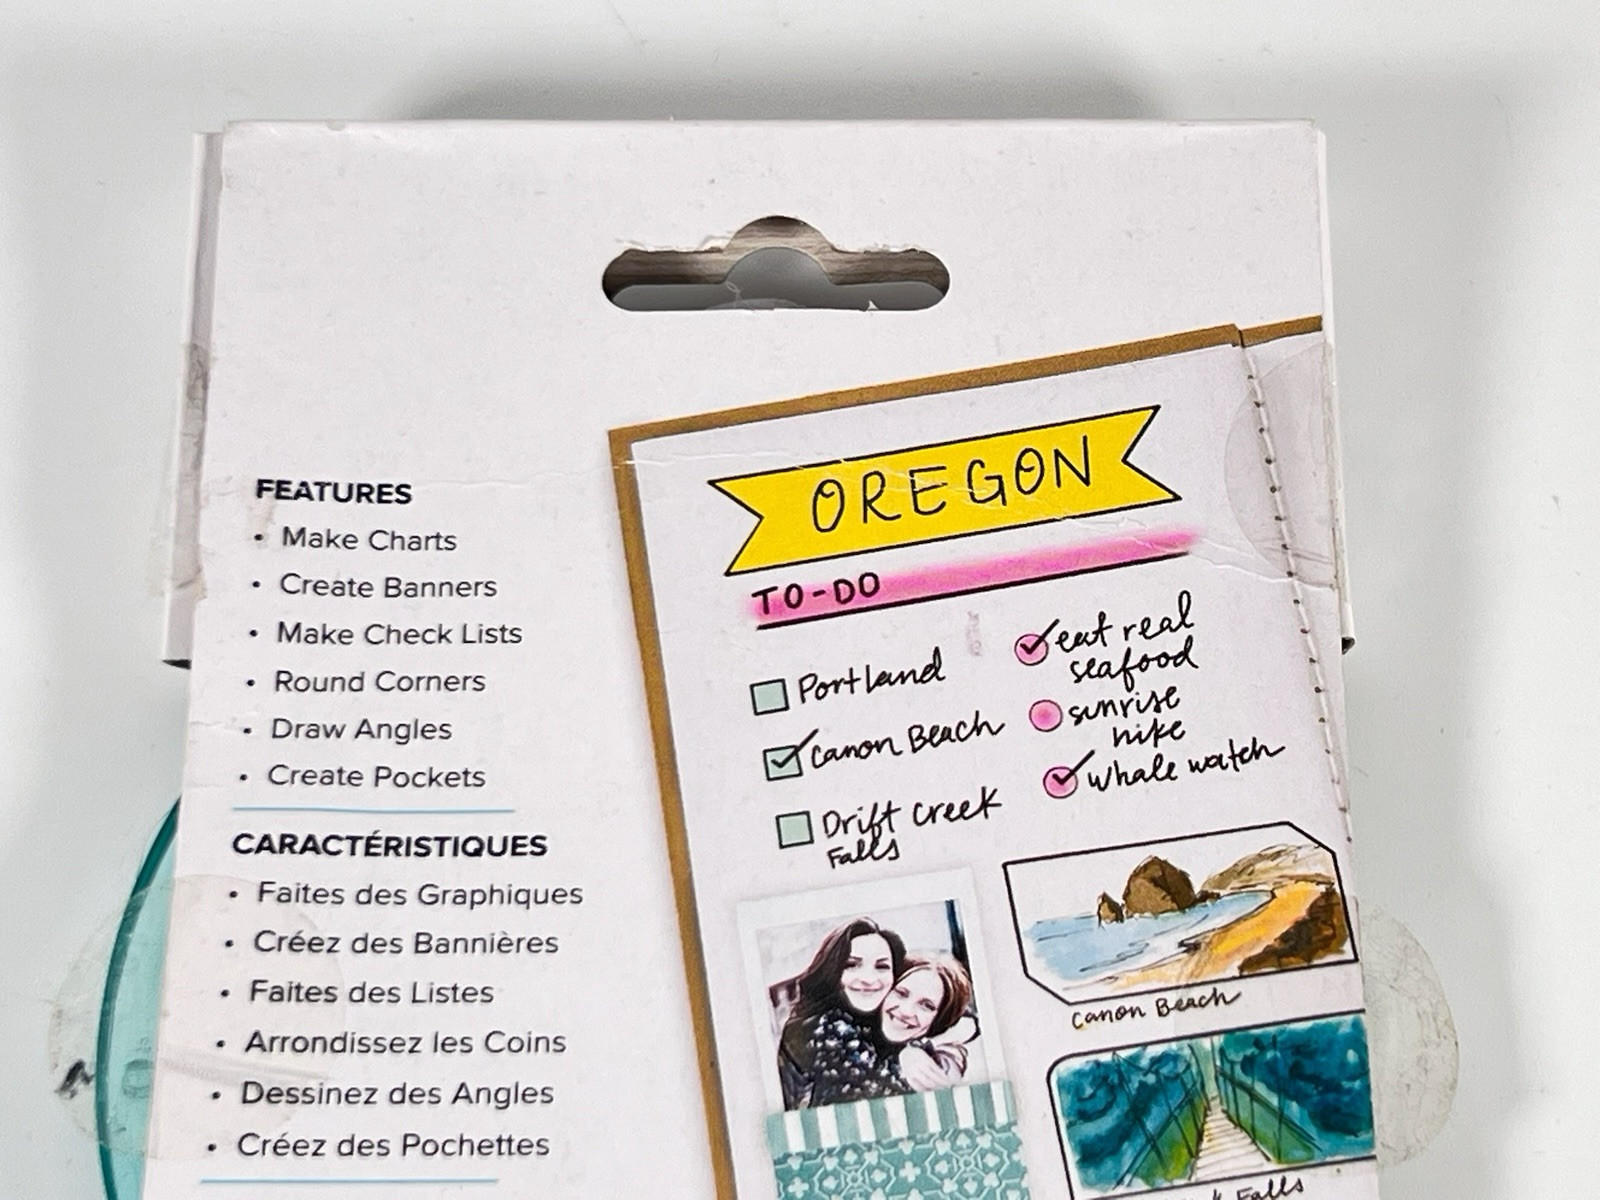 FEATURES
• Make Charts
• Create Banners
• Make Check Lists
• Round Corners
• Draw Angles
• Create Pockets
CARACTÉRISTIQUES
• Faites des Graphiques
• Créez des Bannières
• Faites des Listes
• Arrondissez les Coins
• Dessinez des Angles
• Créez des Pochettes
OREGON
TO-DO
Portland
Canon Beach
Drift Creek
Falls
eat real
seafood
sunrise
hike
whale watch
Canon Beach
Falls